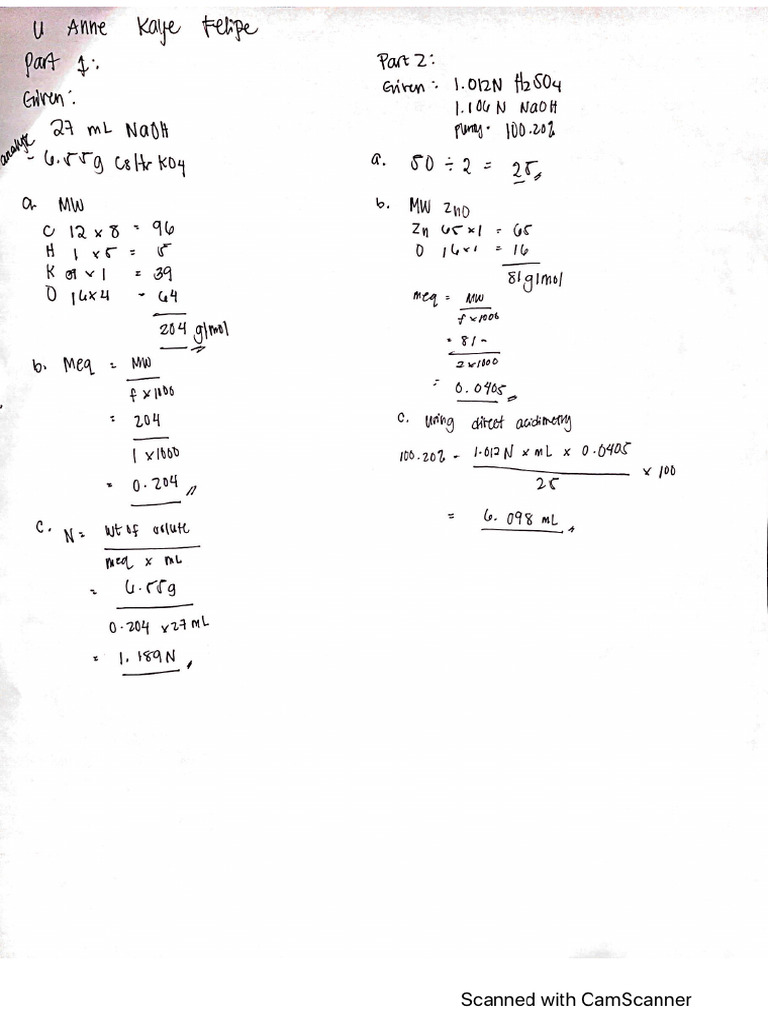 U Anne Kaye Felipe
Part 1:
Given:
27 mL NaOH
analyte - 6.55g C8H5KO4
a. MW
C 12 x 8 = 96
H 1 x 5 = 5
K 39 x 1 = 39
O 16x4 - 64
204 g/mol
b. Meq = MW
f x 1000
= 204
1 x 1000
= 0.204
c. N = wt of solute
meq x mL
= 6.55g
0.204 x27 mL
= 1.189N
Part 2:
Given: 1.012N H2SO4
1.106 N NaOH
purity - 100.20%
a. 50 ÷ 2 = 25
b. MW ZnO
Zn 65 x1 = 65
O 16x1 = 16
81g/mol
meq = MW
f x1000
= 81
2 x1000
= 0.0405
c. using direct acidimetry
100.20% = 1.012N x mL x 0.0405
25
x 100
= 6.098 mL
Scanned with CamScanner